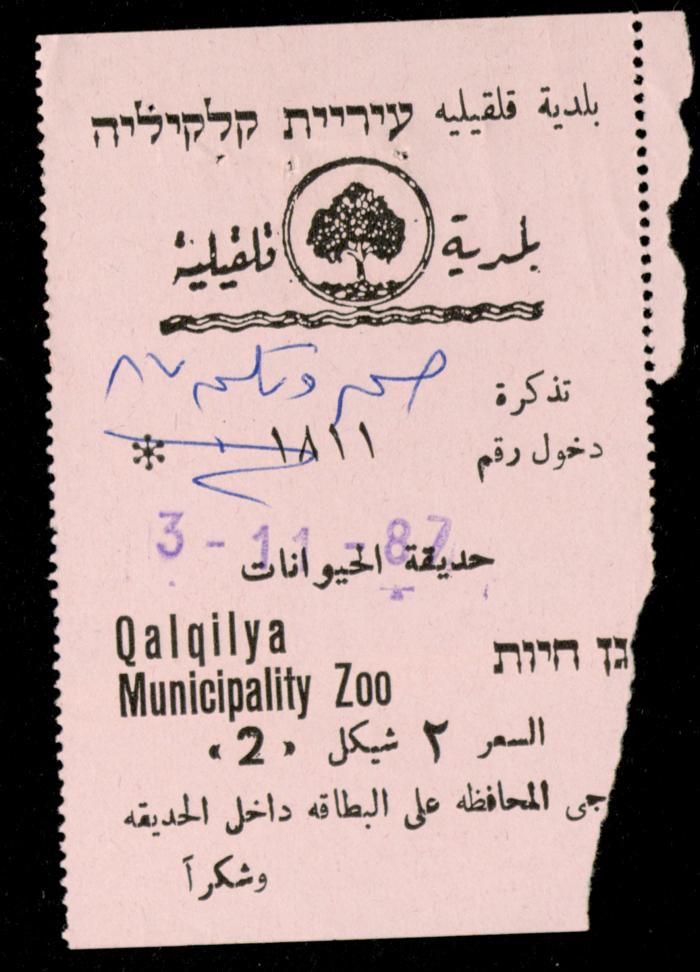 بلدية قلقيليه עיריית קלקיליה
بلدية قلقيلية
تذكرة
دخول رقم ١٨١١
3 - 11 - 87
حديقة الحيوانات
Qalqilya
Municipality Zoo
גן חיות
السعر ٢ شيكل «2»
جى المحافظه على البطاقه داخل الحديقه
وشكراً